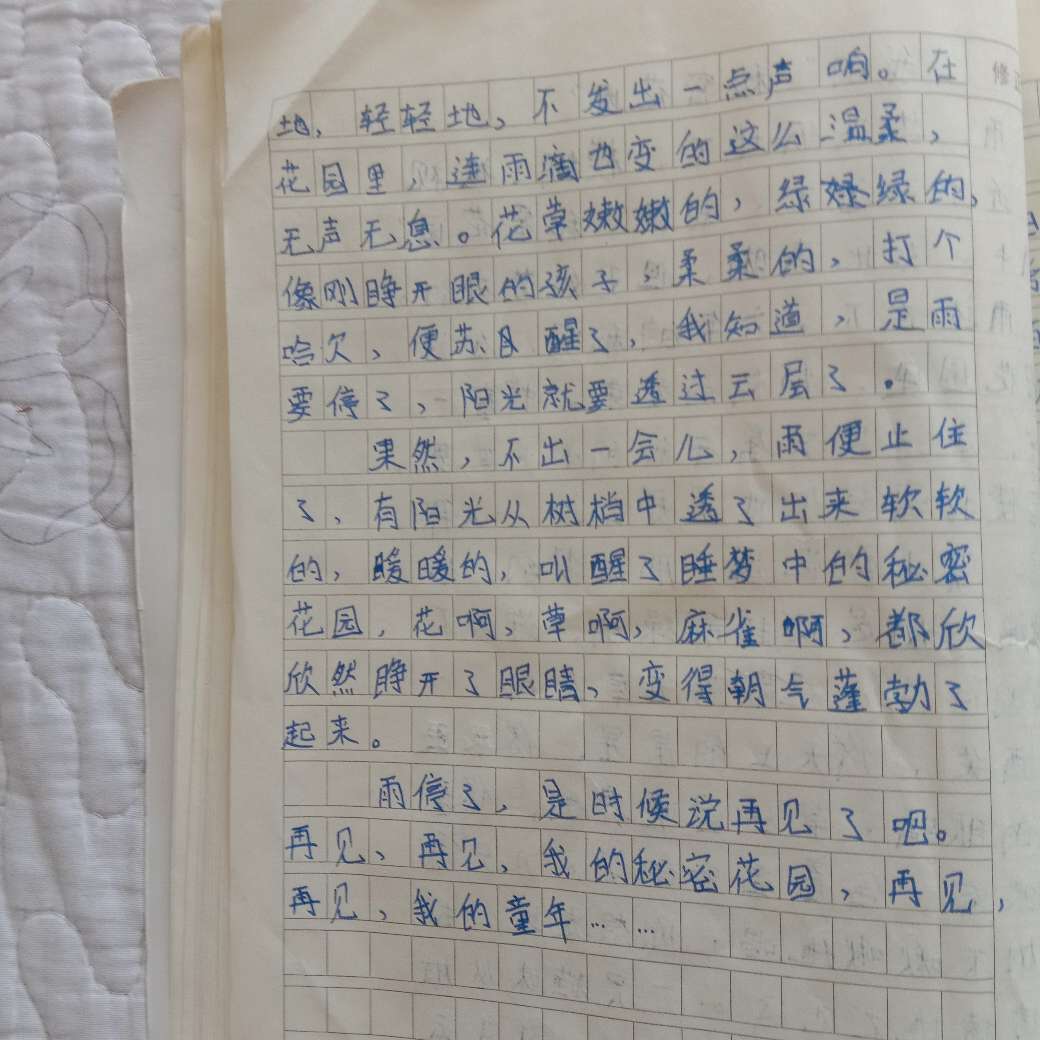 地，轻轻地，不发出一点声响。在
花园里，连雨滴也变的这么温柔，
无声无息。花草嫩嫩的，绿绿绿的，
像刚睁开眼的孩子，柔柔的，打个
哈欠，便苏醒了，我知道，是雨
要停了，阳光就要透过云层了。
果然，不出一会儿，雨便止住
了，有阳光从树档中透了出来软软
的，暖暖的，叫醒了睡梦中的秘密
花园，花啊，草啊，麻雀啊，都欣
欣然睁开了眼睛，变得朝气蓬勃了
起来。
雨停了，是时候说再见了吧。
再见，再见，我的秘密花园，再见，
再见，我的童年……